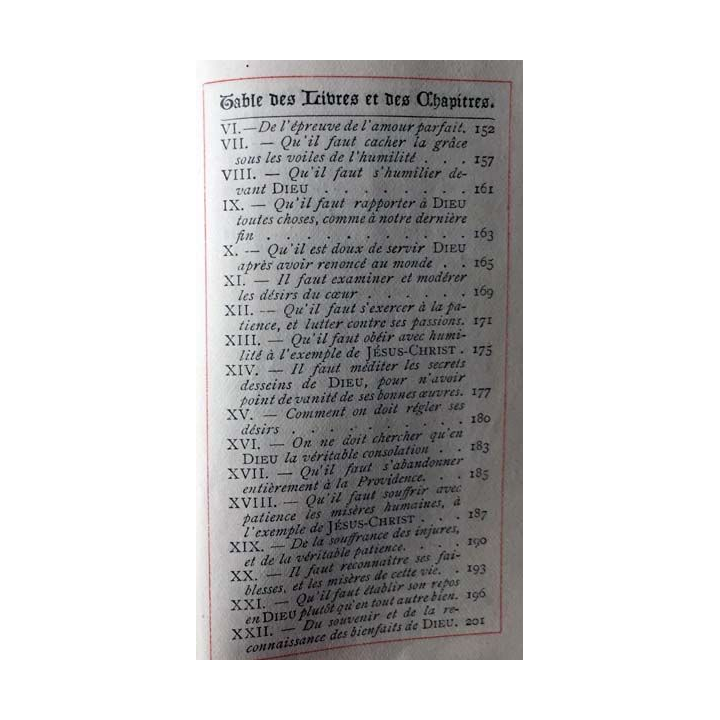 Table des Livres et des Chapitres.
VI.—De l'épreuve de l'amour parfait. 152
VII. — Qu'il faut cacher la grâce
sous les voiles de l'humilité . . . 157
VIII. — Qu'il faut s'humilier de-
vant DIEU . . . . . . . . 161
IX. — Qu'il faut rapporter à DIEU
toutes choses, comme à notre dernière
fin . . . . . . . . . . 163
X. — Qu'il est doux de servir DIEU
après avoir renoncé au monde . . 165
XI. — Il faut examiner et modérer
les désirs du cœur . . . . . . 169
XII. — Qu'il faut s'exercer à la pa-
tience, et lutter contre ses passions. 171
XIII. — Qu'il faut obéir avec humi-
lité à l'exemple de JÉSUS-CHRIST . 175
XIV. — Il faut méditer les secrets
desseins de DIEU, pour n'avoir
point de vanité de ses bonnes œuvres. 177
XV. — Comment on doit régler ses
désirs . . . . . . . . . 180
XVI. — On ne doit chercher qu'en
DIEU la véritable consolation . . 183
XVII. — Qu'il faut s'abandonner
entièrement à la Providence. . . 185
XVIII. — Qu'il faut souffrir avec
patience les misères humaines, à
l'exemple de JÉSUS-CHRIST . . . 187
XIX. — De la souffrance des injures,
et de la véritable patience. . . . 190
XX. — Il faut reconnaître ses fai-
blesses, et les misères de cette vie. . 193
XXI. — Qu'il faut établir son repos
en DIEU plutôt qu'en tout autre bien. 196
XXII. — Du souvenir et de la re-
connaissance des bienfaits de DIEU. 201